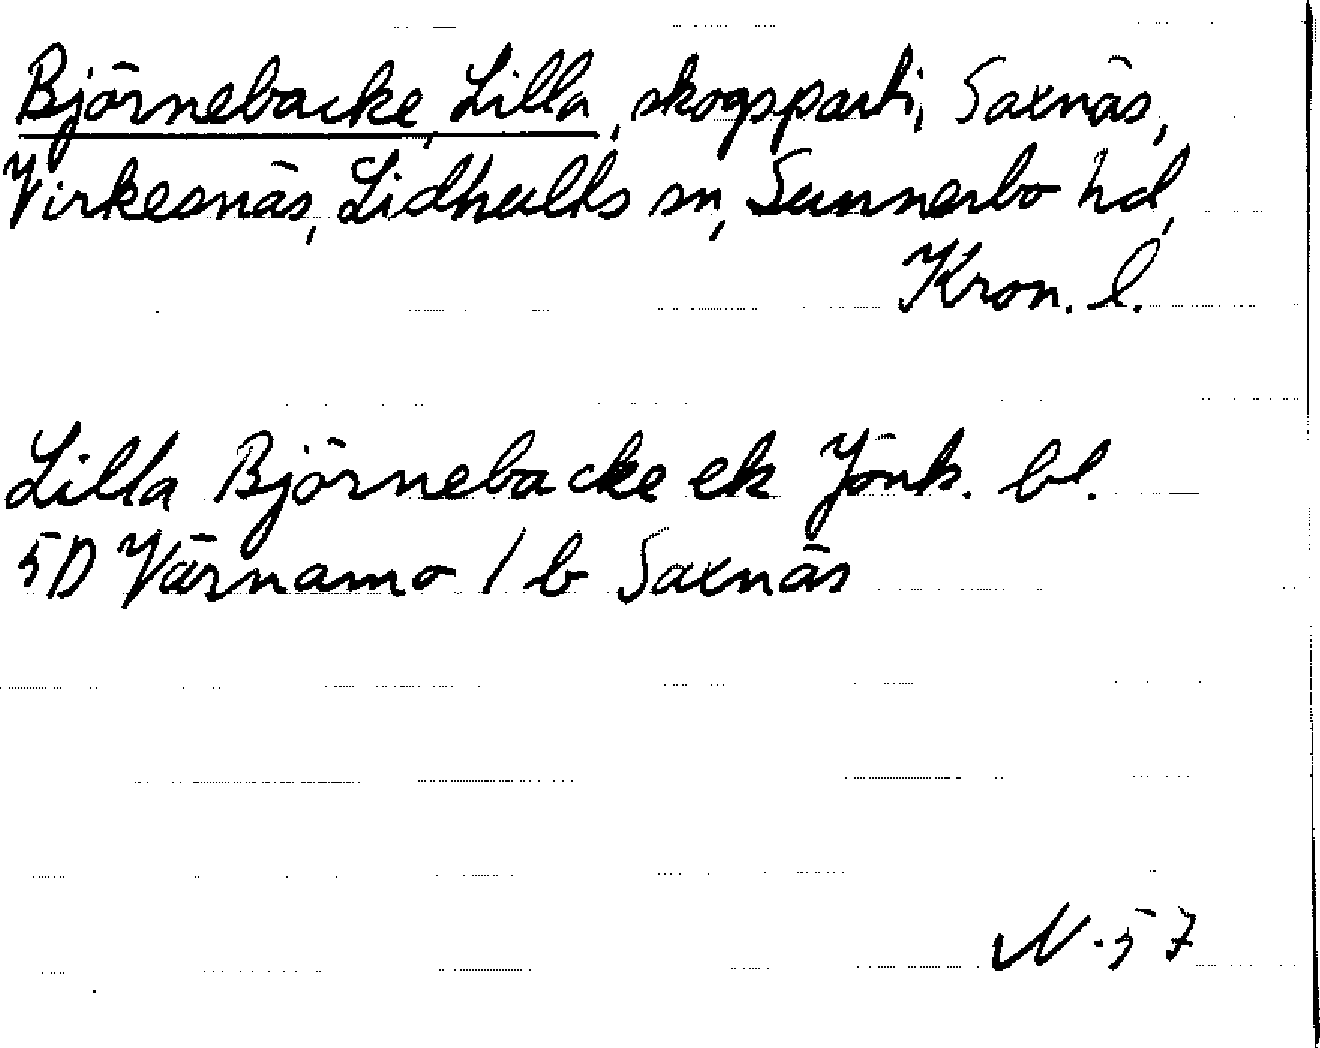 Björnebacke, Lilla, skogsparti, Saxnäs,
Virkesnäs, Lidhults sn, Sunnerbo hd,
Kron. l.
Lilla Björnebacke ek Jönk. bl.
5D Värnamo 1b Saxnäs
N-57